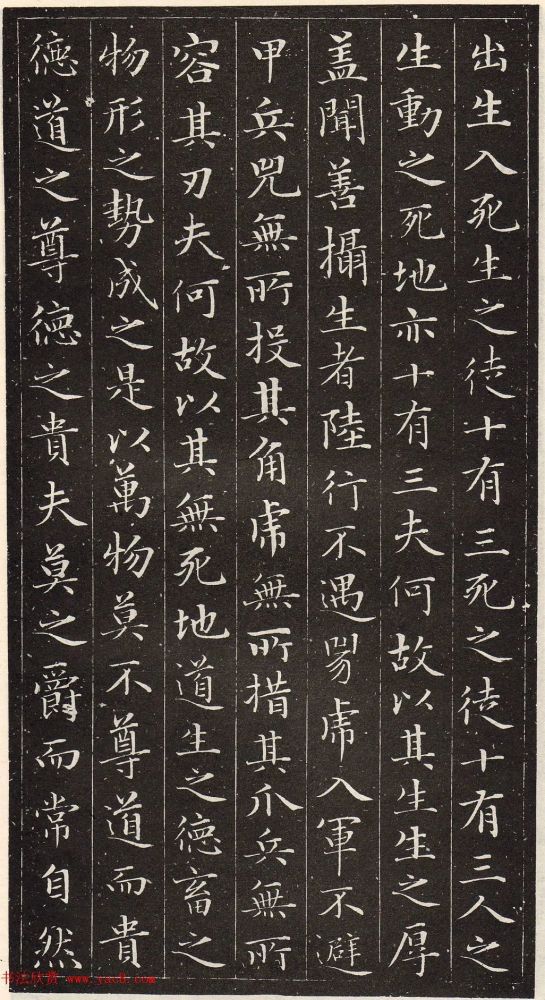 出生入死生之徒十有三死之徒十有三人之
生動之死地亦十有三夫何故以其生生之厚
盖聞善攝生者陸行不遇兕虎入軍不避
甲兵兕無所投其角虎無所措其爪兵無所
容其刃夫何故以其無死地道生之德畜之
物形之勢成之是以萬物莫不尊道而貴
德道之尊德之貴夫莫之爵而常自然
书法欣赏 www.yac8.com